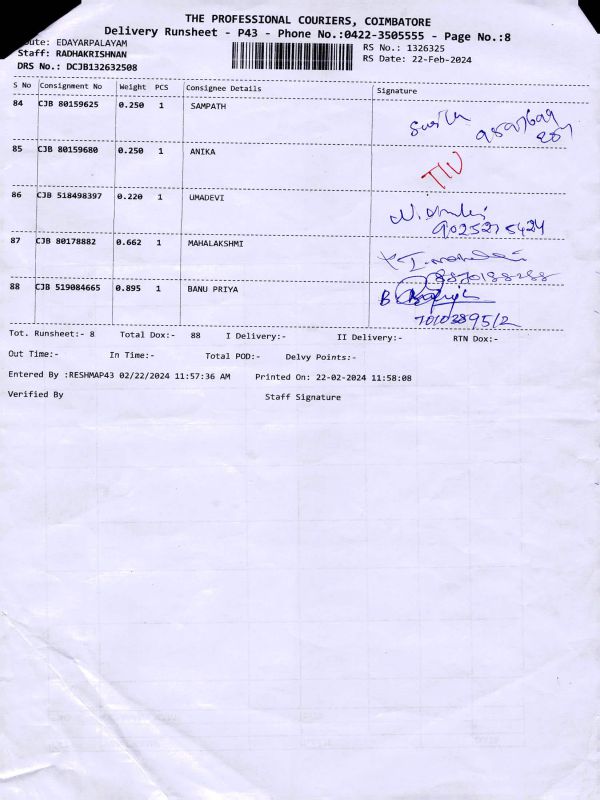 THE PROFESSIONAL COURIERS, COIMBATORE
Delivery Runsheet - P43 - Phone No.:0422-3505555 - Page No.:8
Route: EDAYARPALAYAM
RS No.: 1326325
Staff: RADHAKRISHNAN
RS Date: 22-Feb-2024
DRS No.: DCJB132632508
S No Consignment No Weight PCS Consignee Details Signature
84 CJB 80159625 0.250 1 SAMPATH
85 CJB 80159680 0.250 1 ANIKA
86 CJB 518498397 0.220 1 UMADEVI
9025275424
87 CJB 80178882 0.662 1 MAHALAKSHMI
88 CJB 519084665 0.895 1 BANU PRIYA
Tot. Runsheet:- 8 Total Dox:- 88 I Delivery:- II Delivery:- RTN Dox:-
Out Time:- In Time:- Total POD:- Delvy Points:-
Entered By :RESHMAP43 02/22/2024 11:57:36 AM Printed On: 22-02-2024 11:58:08
Verified By Staff Signature